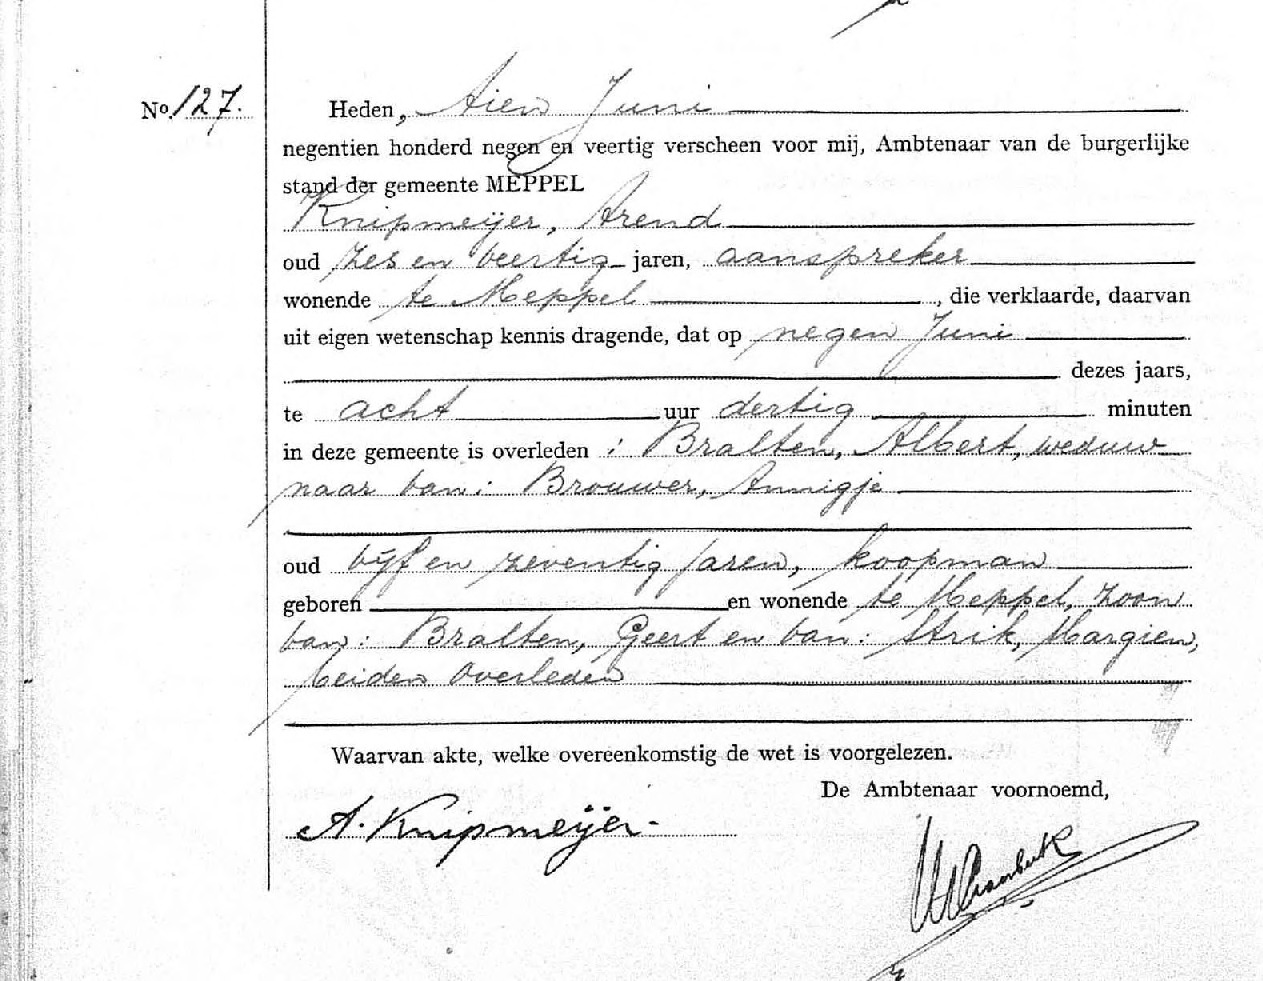 No. 127.
Heden, tien Juni
negentien honderd negen en veertig verscheen voor mij, Ambtenaar van de burgerlijke
stand der gemeente MEPPEL
Knipmeijer, Arend
oud zes en veertig jaren, aanspreker
wonende te Meppel, die verklaarde, daarvan
uit eigen wetenschap kennis dragende, dat op negen Juni
dezes jaars,
te acht uur dertig minuten
in deze gemeente is overleden : Bralten, Albert, weduw
naar van: Brouwer, Annigje
oud vijf en zeventig jaren, koopman
geboren en wonende te Meppel, zoon
van: Bralten, Geert en van: Strik, Margien,
beiden overleden
Waarvan akte, welke overeenkomstig de wet is voorgelezen.
De Ambtenaar voornoemd,
A. Knipmeijer.